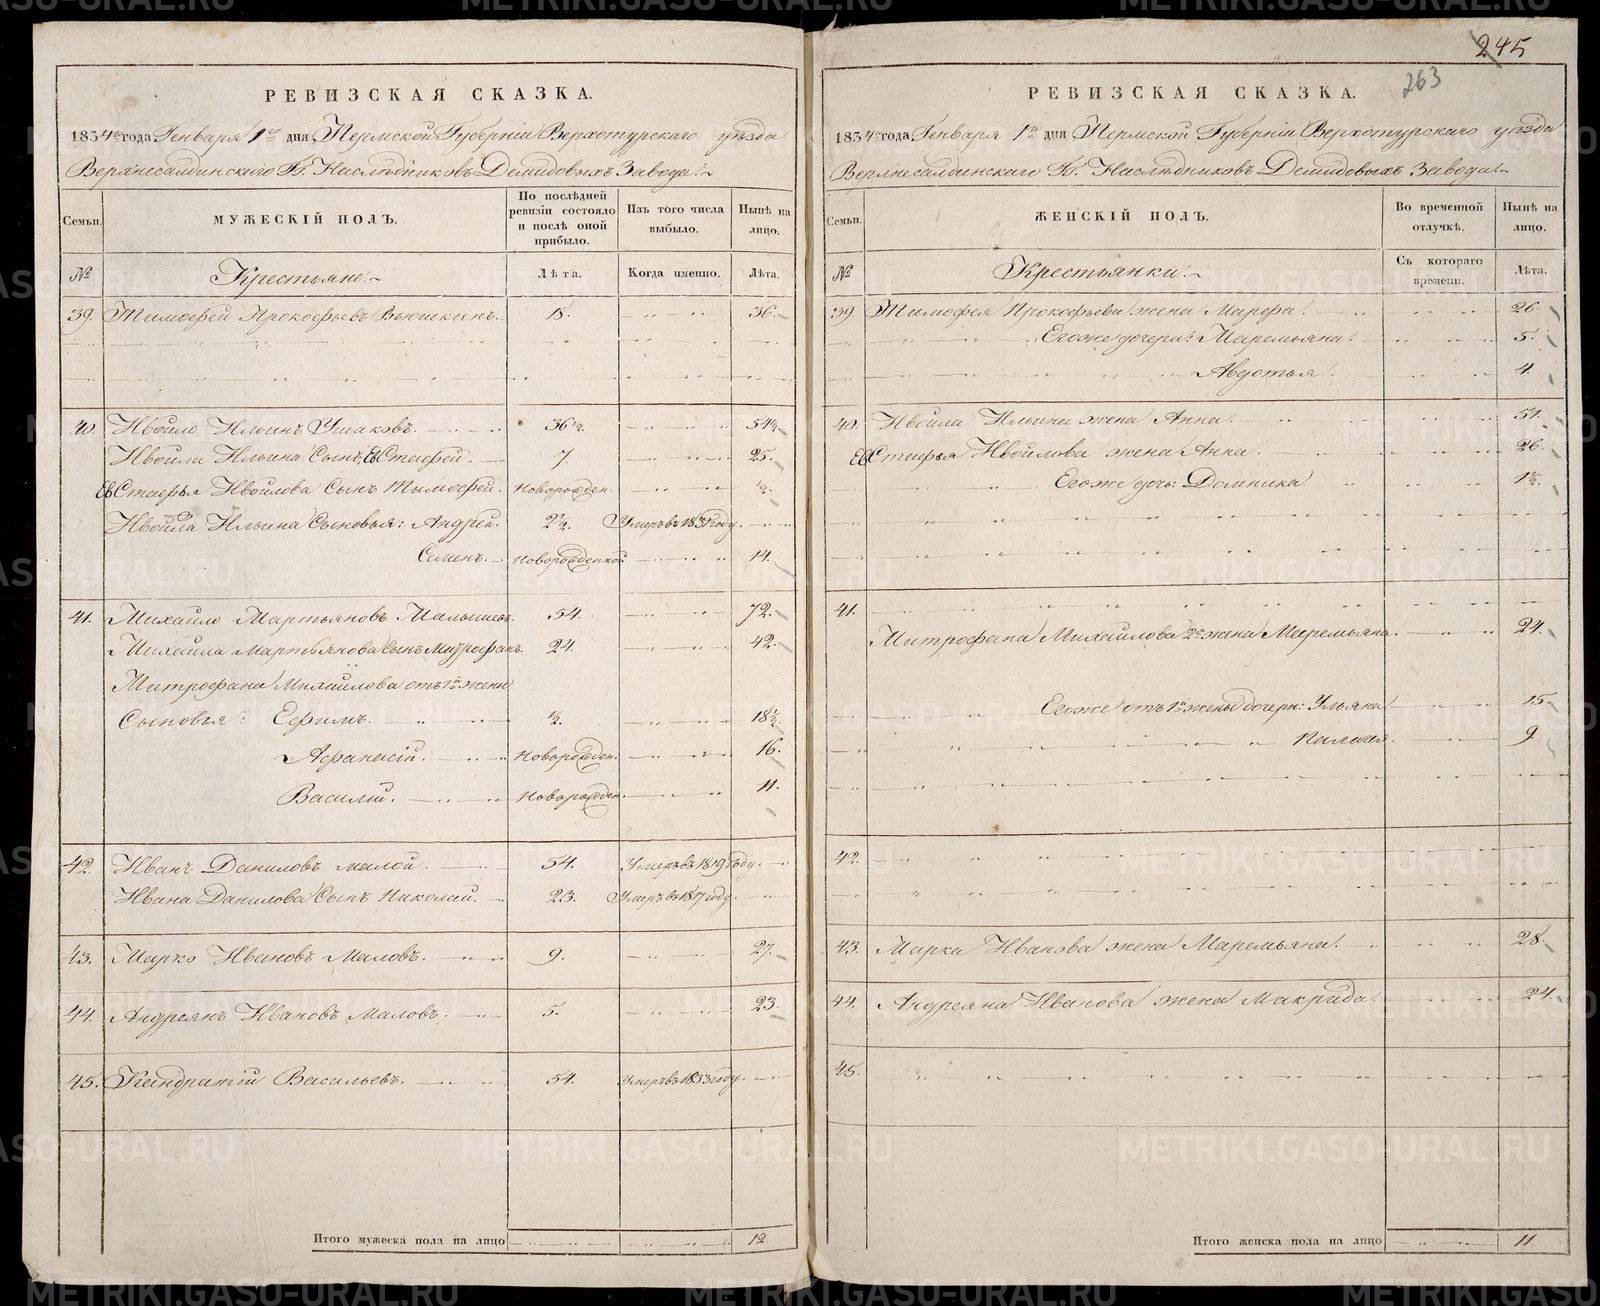 РЕВИЗСКАЯ СКАЗКА.
1834го года Генваря 1го дня Пермской Губерніи Верхотурскаго уѣзда
Верхнесалдинскаго Гг. Наслѣдниковъ Демидовыхъ Завода
Семьи.
МУЖЕСКІЙ ПОЛЪ.
По послѣдней ревизіи состояло и послѣ оной прибыло.
Изъ того числа выбыло.
Нынѣ на лицо.
№ Крестьяне. Лѣта. Когда именно. Лѣта.
39. Тимофей Прокофьевъ Вьюшкинъ. 18. 36.
40. Ивойло Ильинъ Ушаковъ. 36 ½. 54½.
Ивойла Ильина Сынъ, Евстафей. 7. 25.
Евстафья Ивойлова Сынъ Тимофей. Новорожден. ½.
Ивойла Ильина Сыновья: Андрей. 2½. Умеръ въ 1831 году.
Семенъ. Новорожденной 14.
41. Михайло Мартьяновъ Малышевъ. 54. 72.
Михайла Мартьянова Сынъ Митрофанъ. 24. 42.
Митрофана Михайлова отъ 1й жены
Сыновья: Ефимъ. ½. 18½.
Афанасій. Новорожден. 16.
Василій. Новорожден. 11.
42. Иванъ Даниловъ малой. 54. Умеръ въ 1819 году.
Ивана Данилова Сынъ Николай. 23. Умеръ въ 1817 году.
43. Марко Ивановъ Маловъ. 9. 27.
44. Андреянъ Ивановъ Маловъ. 5. 23.
45. Кандратій Васильевъ. 54. Умеръ въ 1833 году.
Итого мужеска пола на лицо 12.
245
263
РЕВИЗСКАЯ СКАЗКА.
1834го года Генваря 1го дня Пермской Губерніи Верхотурскаго уѣзда
Верхнесалдинскаго Гг. Наслѣдниковъ Демидовыхъ Завода
Семьи.
ЖЕНСКІЙ ПОЛЪ.
Во временной отлучкѣ.
Нынѣ на лицо.
№ Крестьянки. Съ котораго времени. Лѣта.
39 Тимофея Прокофьева жена Марфа. 26.
Его же дочери: Маремьяна. 5.
Авдотья. 4.
40. Ивойла Ильина жена Анна. 51.
Евстафья Ивойлова жена Анна. 26.
Его же дочь: Домника 1½.
41.
Митрофана Михайлова 2я жена Маремьяна. 24.
Его же отъ 1й жены дочери: Ульяна 15.
Палагея. 9
42.
43. Марка Иванова жена Маремьяна. 28.
44. Андреяна Иванова жена Макрида. 24.
45.
Итого женска пола на лицо 11
METRIKI.GASO-URAL.RU